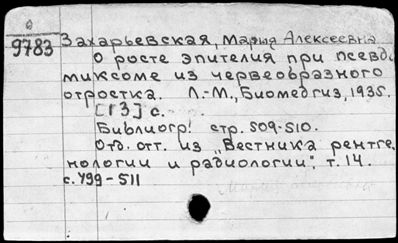 9783
Захарьевская, Мария Алексеевна
О росте эпителия при псевдо
миксоме из червеобразного
отростка. Л.-М., Биомедгиз, 1935.
[13] с.
Библиогр: стр. 509-510.
Отд. отт. из „Вестника рентге
нологии и радиологии", т. 14.
с. 499-511